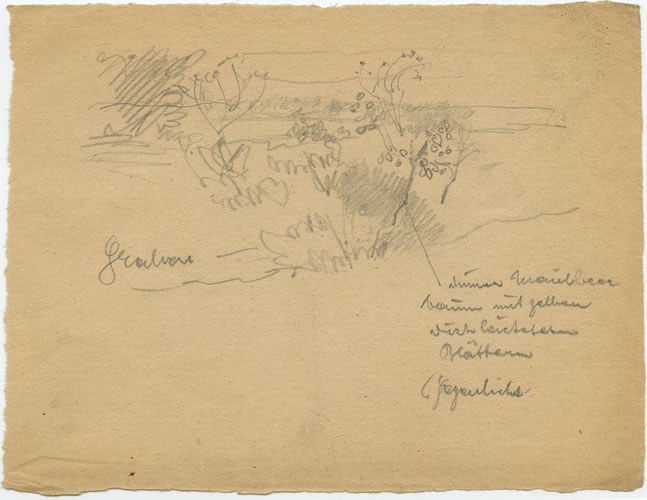 Graben
dünner Maulbeer
baum mit gelben
durchleuchteten
Blättern
(Gegenlicht